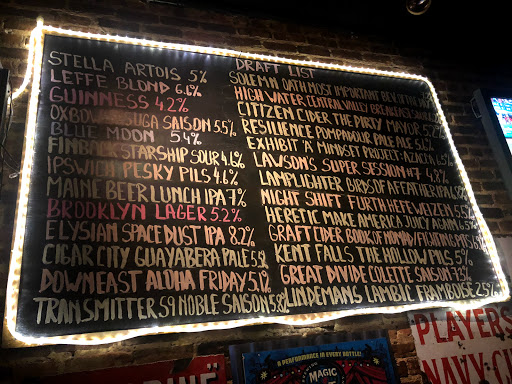 STELLA ARTOIS 5%
LEFFE BLOND 6.6%
GUINNESS 4.2%
OXBOW SUGA SAISON 5.5%
BLUE MOON 5.4%
STARSHIP SOUR 4.6%
IPSWICH PESKY PILS 4.6%
MAINE BEER LUNCH IPA 7%
BROOKLYN LAGER 5.2%
ELYSIAN SPACE DUST IPA 8.2%
CIGAR CITY GUAYABERA PALE 5.5%
DOWNEAST ALOHA FRIDAY 5.1%
TRANSMITTER S9 NOBLE SAISON 5.8%
DRAFT LIST
SOLEMN OATH MOST IMPORTANT BEER OF THE
HIGH WATER CENTRAL VALLEY BREAKFAST SOUR
CITIZEN CIDER THE DIRTY MAYOR 5.2%
RESILIENCE POMPADOUR PALE ALE 5.6%
EXHIBIT 'A' MINDSET PROJECT: AZACCA
LAWSON'S SUPER SESSION #7 4.8%
LAMPLIGHTER BIRDS OF A FEATHER IPA
NIGHT SHIFT FURTH HEFEWEIZEN 5.5%
HERETIC MAKE AMERICA JUICY AGAIN 6.5%
GRAFT CIDER BOOK OF NOMAD/
KENT FALLS THE HOLLOW PILS 5%
GREAT DIVIDE COLETTE SAISON 7.3%
LINDEMANS LAMBIC FRAMBOISE 2.5%
PLAYERS
NAVY CU
A PERFORMANCE IN EVERY BOTTLE!
MAGIC